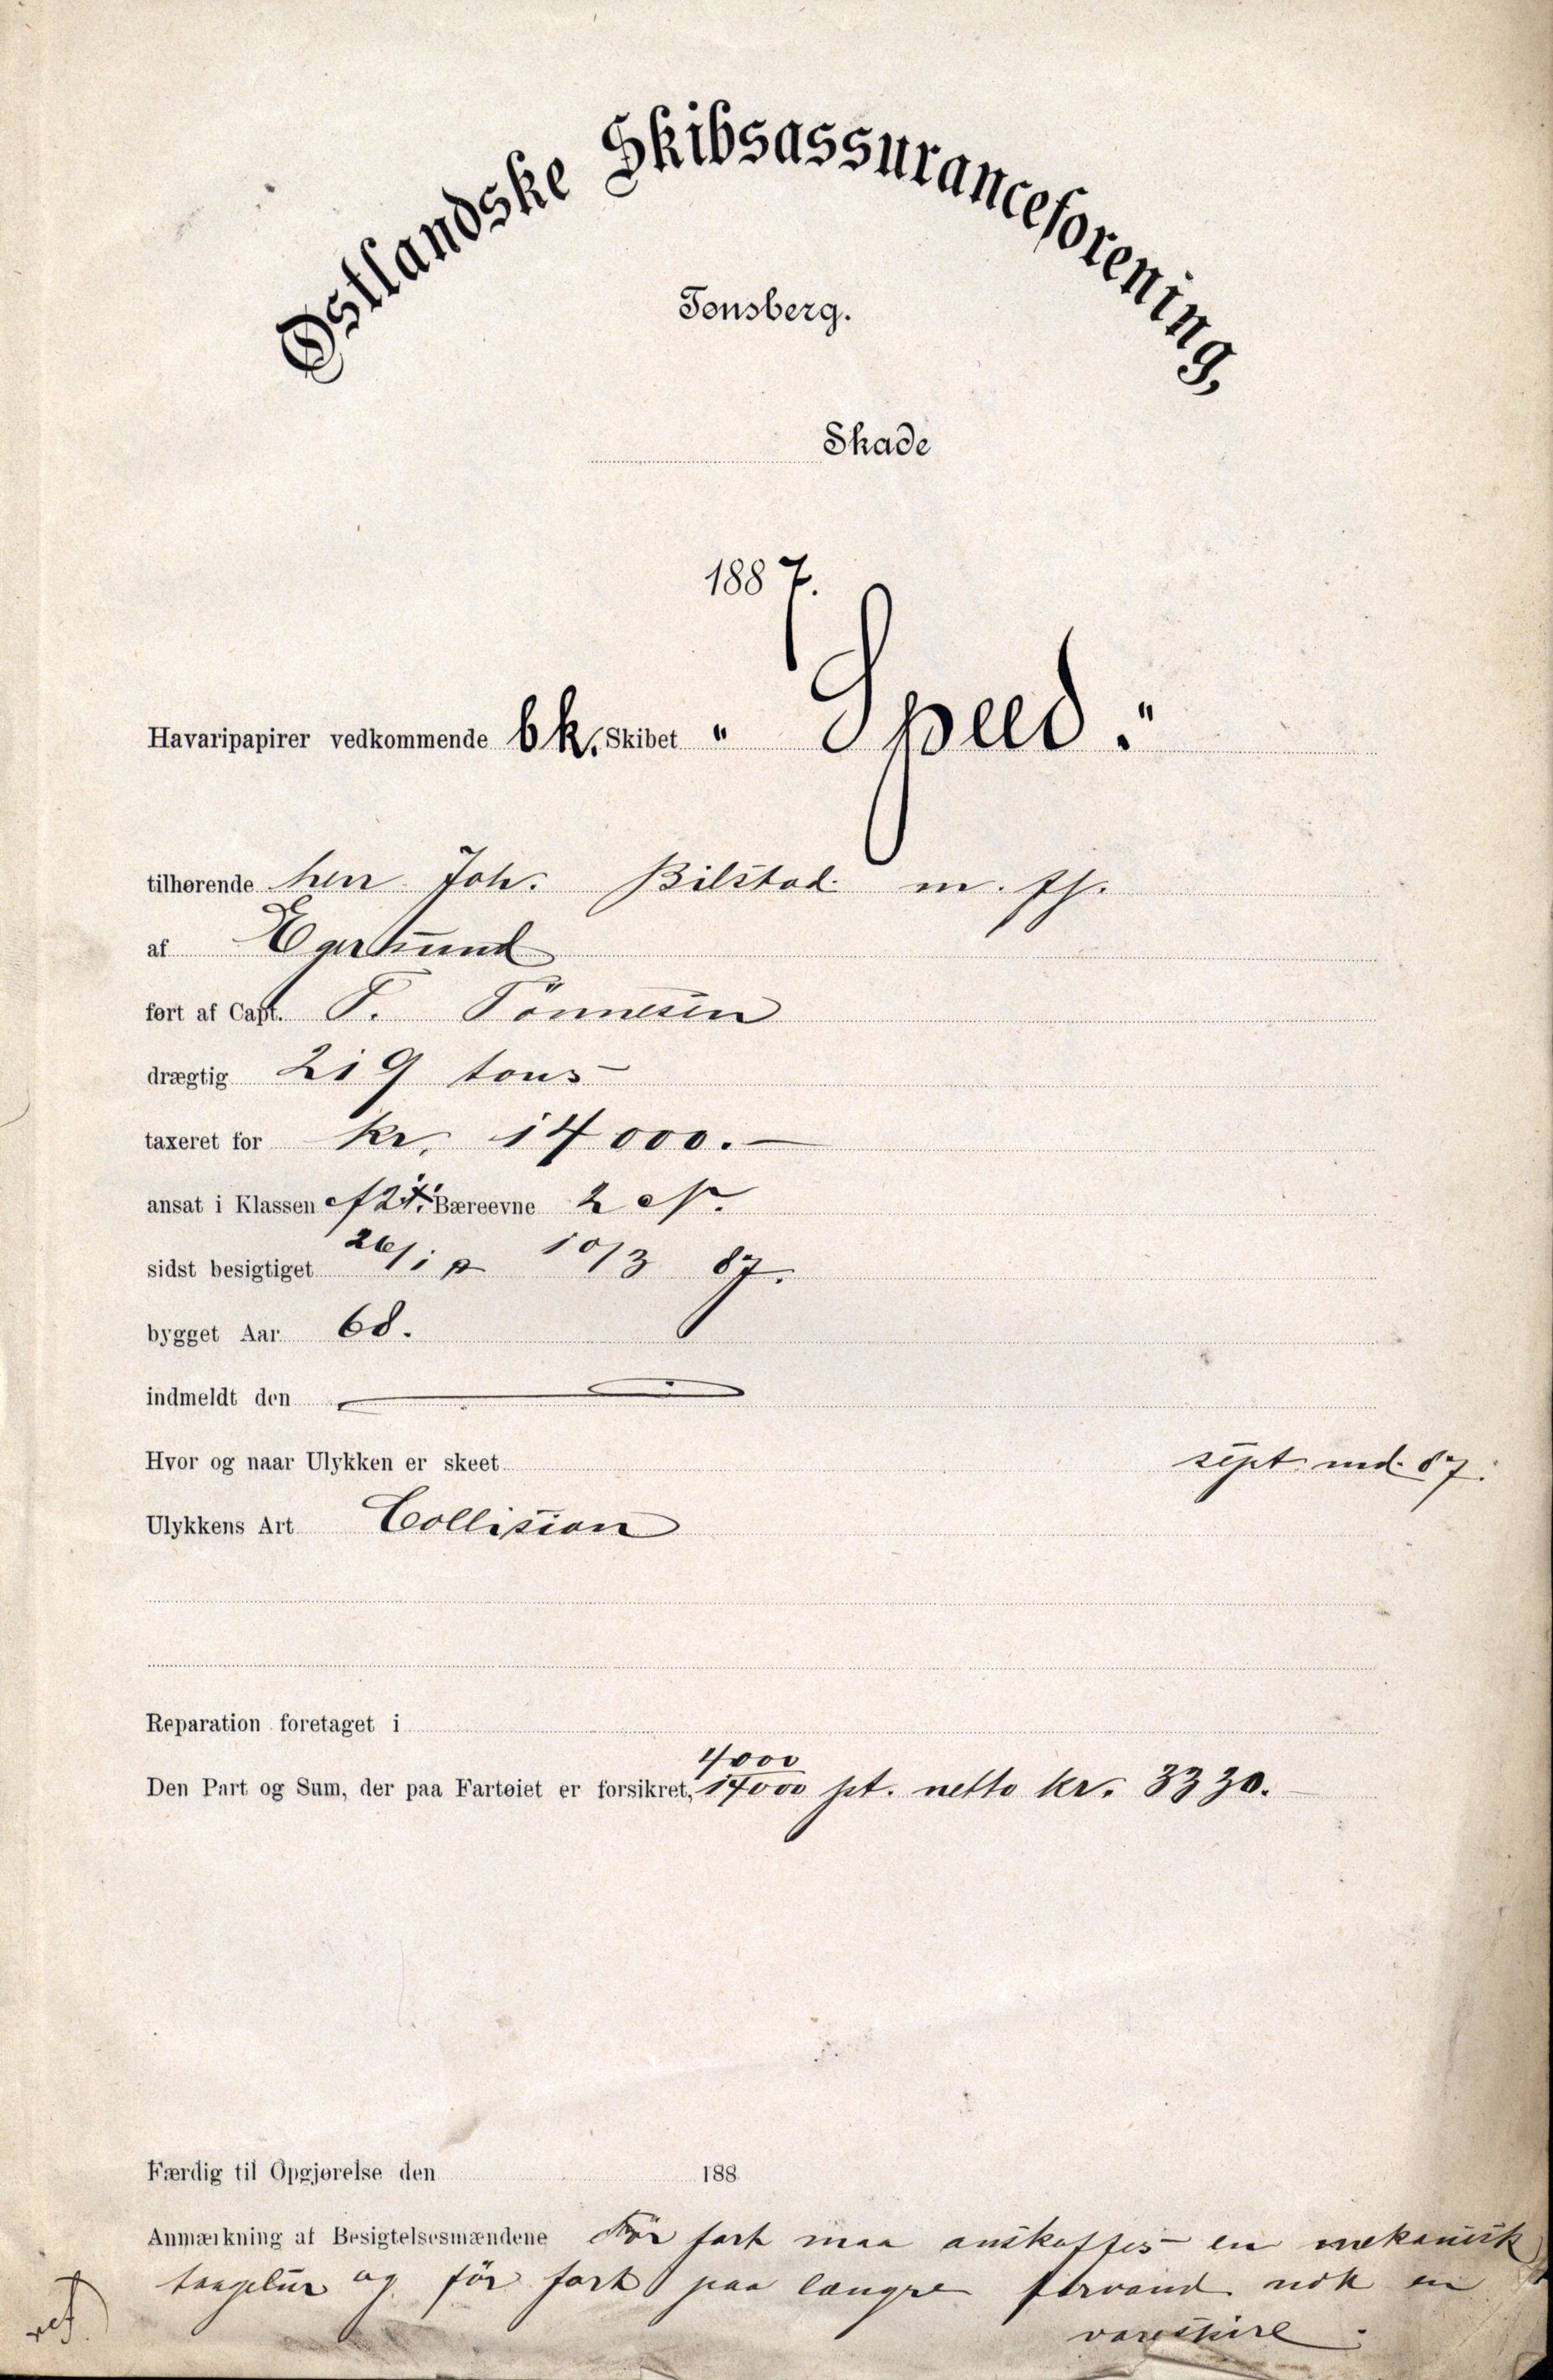 Østlandske Skibsassuranceforening,
Tønsberg.
Skade
1887.
Havaripapirer vedkommende bk. Skibet "Speed."
tilhørende herr Joh. Bilstad m. fl.
af Egersund
ført af Capt. T. Tönnesen
drægtig 219 tons
taxeret for kr. 14000.—
ansat i Klassen A2 Bæreevne 2 N.
sidst besigtiget 26/1 10/3 87.
bygget Aar 68.
indmeldt den
Hvor og naar Ulykken er skeet sept. md. 87.
Ulykkens Art Collision
Reparation foretaget i
Den Part og Sum, der paa Fartøiet er forsikret, 4000/14000 pt. netto kr. 3330.—
Færdig til Opgjørelse den 188
Anmærkning af Besigtelsesmændene För fart maa anskaffes en mekanisk
taagelur og för fart paa længre farvand nok en
varespire.